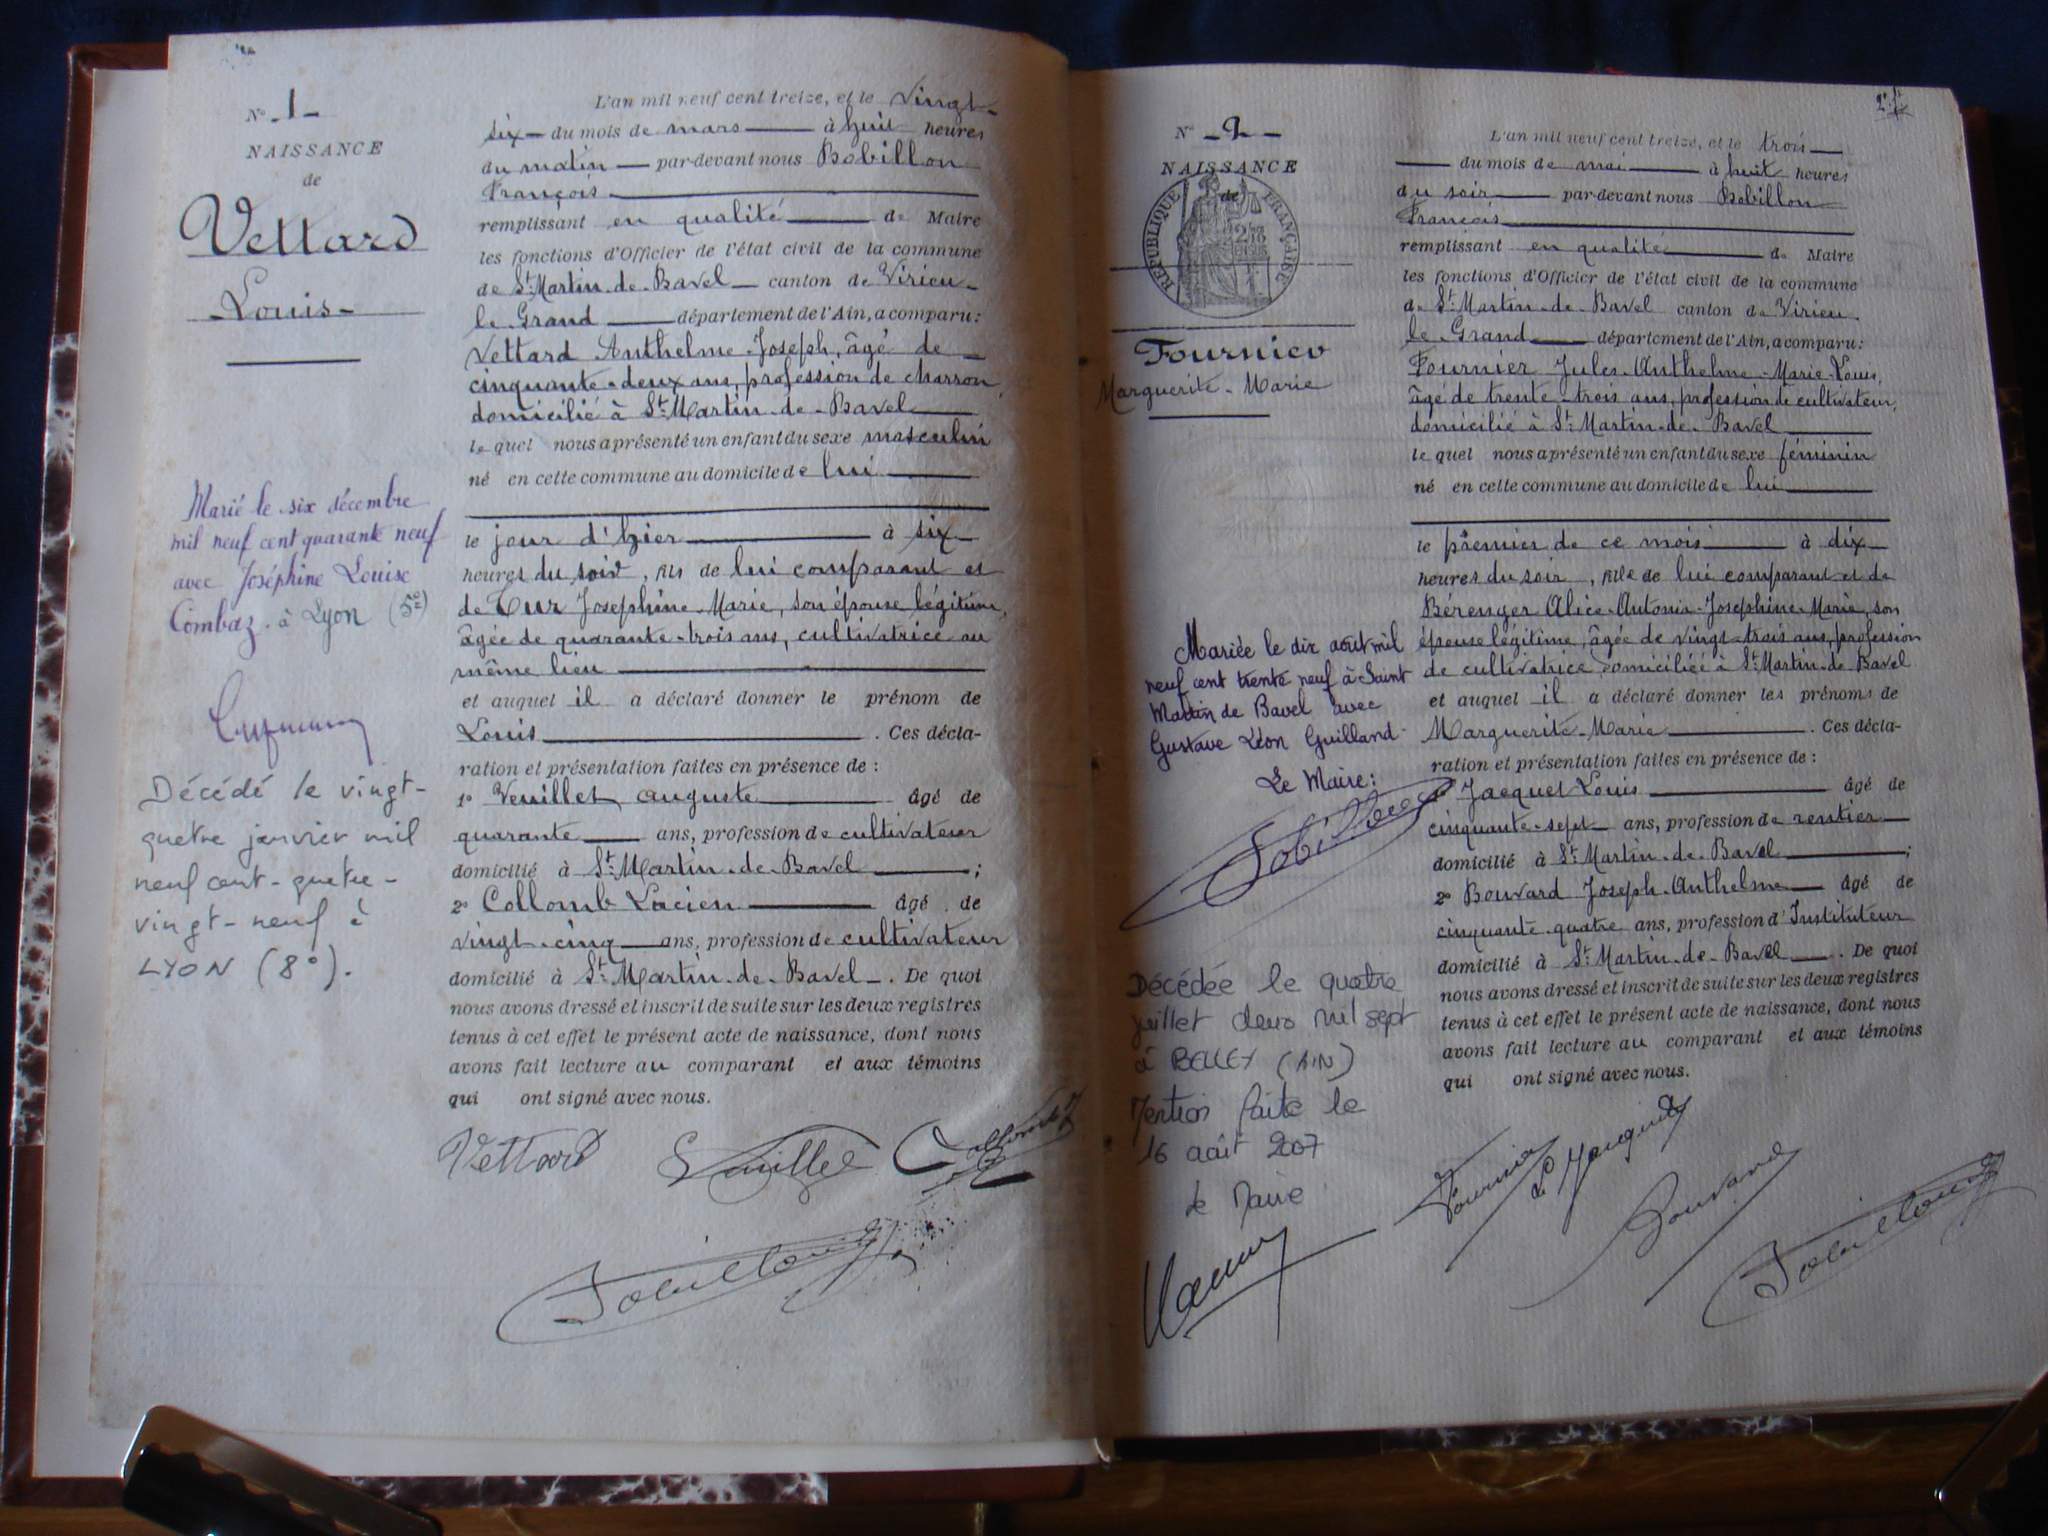 Nº 1
NAISSANCE
de
Vettard
Louis
Marié le six décembre
mil neuf cent quarante neuf
avec Joséphine Louise
Combaz à Lyon (5e)
Décédé le vingt-
quatre janvier mil
neuf cent quatre-
vingt-neuf à
LYON (8°).
L'an mil neuf cent treize, et le vingt-
six du mois de mars à huit heures
du matin par-devant nous Bobillon
François
remplissant en qualité de Maire
les fonctions d'Officier de l'état civil de la commune
de St Martin-de-Bavel canton de Virieu-
le-Grand département de l'Ain, a comparu:
Vettard Anthelme-Joseph, âgé de
cinquante-deux ans, profession de charron,
domicilié à St Martin-de-Bavel
le quel nous a présenté un enfant du sexe masculin
né en cette commune au domicile de lui
le jour d'hier à six
heures du soir, fils de lui comparant et
de Tur Joséphine-Marie, son épouse légitime,
âgée de quarante-trois ans, cultivatrice au
même lieu
et auquel il a déclaré donner le prénom de
Louis. Ces décla-
ration et présentation faites en présence de :
1º Veuillet Auguste âgé de
quarante ans, profession de cultivateur
domicilié à St Martin-de-Bavel ;
2º Collomb Lucien âgé de
vingt-cinq ans, profession de cultivateur
domicilié à St Martin-de-Bavel. De quoi
nous avons dressé et inscrit de suite sur les deux registres
tenus à cet effet le présent acte de naissance, dont nous
avons fait lecture au comparant et aux témoins
qui ont signé avec nous.
Vettard Veuillet Collomb
Bobillon
Nº 2
NAISSANCE
de
RÉPUBLIQUE FRANÇAISE
Fournier
Marguerite-Marie
Mariée le dix août mil
neuf cent trente neuf à Saint
Martin de Bavel avec
Gustave Léon Guilland
Le Maire:
Bobillon
Décédée le quatre
juillet deux mil sept
à BELLEY (AIN)
Mention faite le
16 août 2007
le Maire
L'an mil neuf cent treize, et le trois
du mois de mai à huit heures
du soir par-devant nous Bobillon
François
remplissant en qualité de Maire
les fonctions d'Officier de l'état civil de la commune
de St Martin-de-Bavel canton de Virieu-
le-Grand département de l'Ain, a comparu:
Fournier Jules-Anthelme-Marie-Louis,
âgé de trente-trois ans, profession de cultivateur,
domicilié à St Martin-de-Bavel
le quel nous a présenté un enfant du sexe féminin
né en cette commune au domicile de lui
le premier de ce mois à dix
heures du soir, fille de lui comparant et de
Bérenger Alice-Antonia-Joséphine-Marie, son
épouse légitime, âgée de vingt-trois ans, profession
de cultivatrice domiciliée à St Martin-de-Bavel
et auquel il a déclaré donner les prénoms de
Marguerite-Marie. Ces décla-
ration et présentation faites en présence de :
Jacquet Louis âgé de
cinquante-sept ans, profession de rentier
domicilié à St Martin-de-Bavel ;
2º Bouvard Joseph-Anthelme âgé de
cinquante-quatre ans, profession d'Instituteur
domicilié à St Martin-de-Bavel. De quoi
nous avons dressé et inscrit de suite sur les deux registres
tenus à cet effet le présent acte de naissance, dont nous
avons fait lecture au comparant et aux témoins
qui ont signé avec nous.
Fournier Ls Jacquet
Bouvard Bobillon